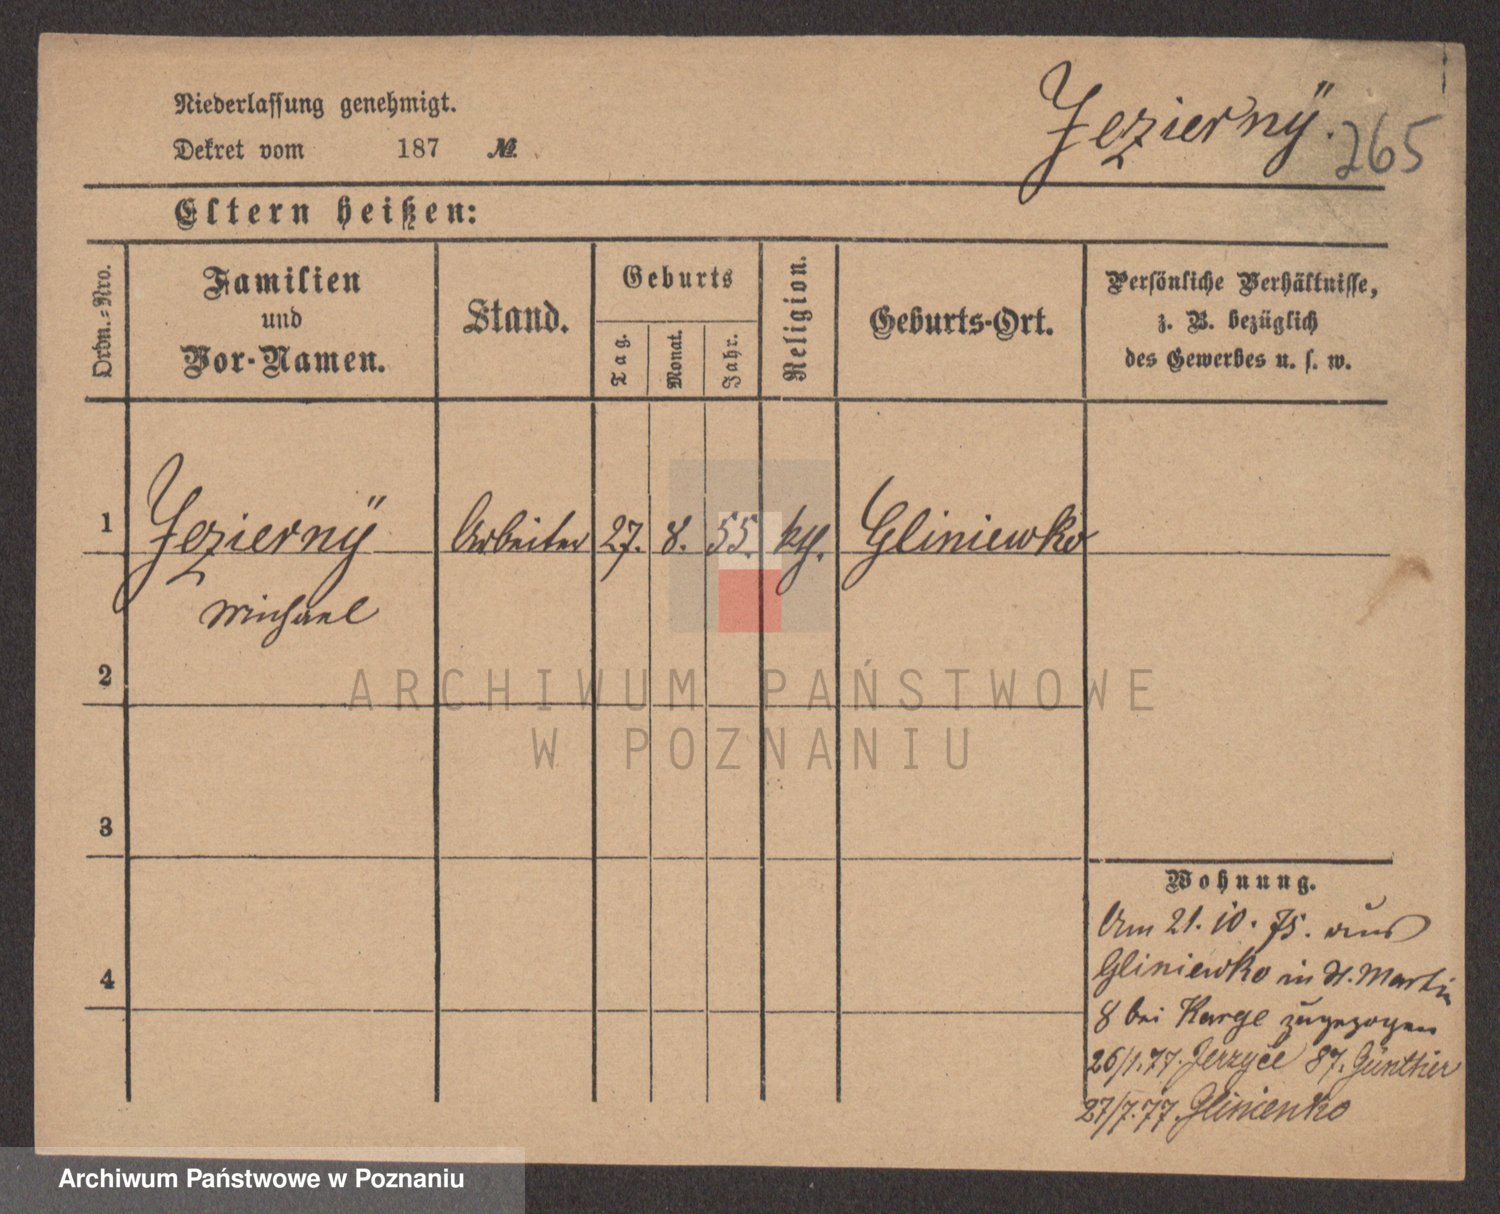 Niederlassung genehmigt.
Dekret vom 187 №.
Jeziernÿ.
265
Eltern heißen:
Ordn.-Nro.
Familien
und
Vor-Namen.
Stand.
Geburts
Tag.
Monat.
Jahr.
Religion.
Geburts-Ort.
Persönliche Verhältnisse,
z. B. bezüglich
des Gewerbes u. s. w.
1 Jeziernÿ Arbeiter 27. 8. 55. Gliniewko
Michael
2
3
4
ARCHIWUM PAŃSTWOWE
W POZNANIU
Wohnung.
Am 21.10.75. aus
Gliniewko in St. Martin
8 bei Karge zugezogen
26/1.77. Jerzyce 87. Günther
27/7.77. Glinienko
Archiwum Państwowe w Poznaniu